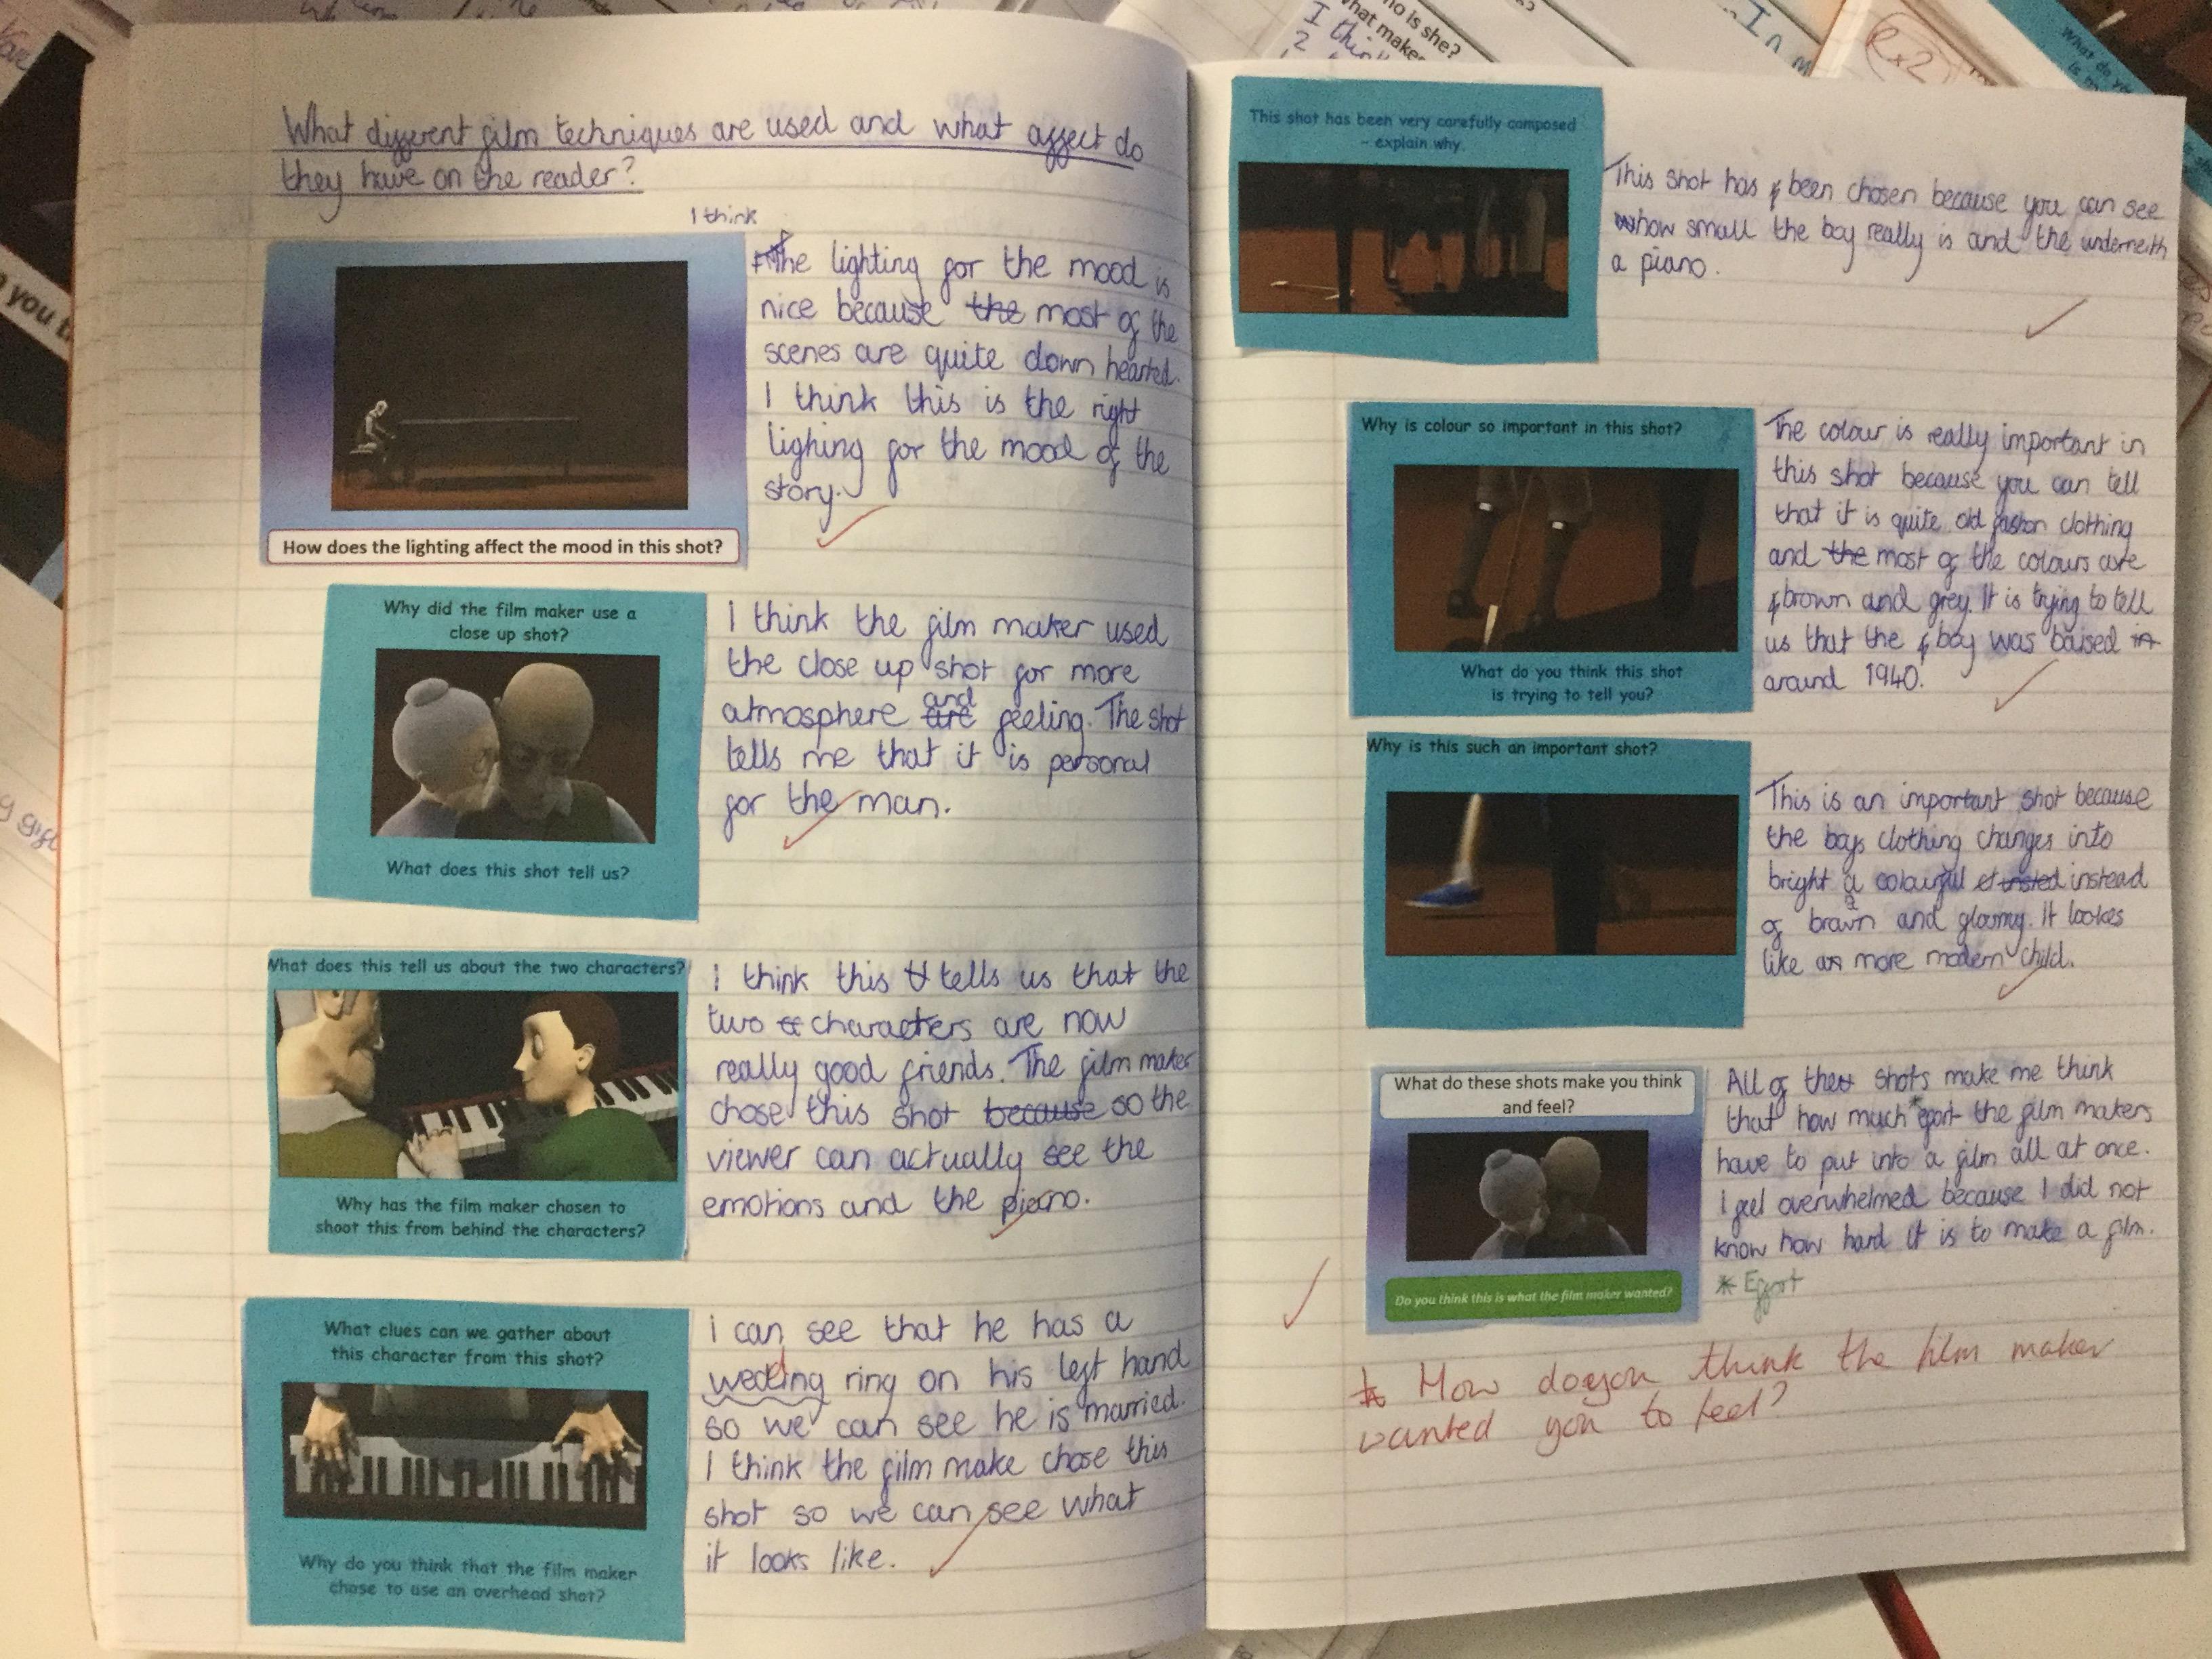 What different film techniques are used and what affect do
they have on the reader?
I think
the lighting for the mood is
nice because the most of the
scenes are quite down hearted.
I think this is the right
lighing for the mood of the
story.
How does the lighting affect the mood in this shot?
Why did the film maker use a
close up shot?
What does this shot tell us?
I think the film maker used
the close up shot for more
and
atmosphere are feeling. The shot
tells me that it is personal
for the man.
What does this tell us about the two characters?
Why has the film maker chosen to
shoot this from behind the characters?
I think this tells us that the
two characters are now
really good friends. The film maker
chose this shot because so the
viewer can actually see the
emotions and the piano.
What clues can we gather about
this character from this shot?
Why do you think that the film maker
chose to use an overhead shot?
I can see that he has a
wedding ring on his left hand
so we can see he is married.
I think the film make chose this
shot so we can see what
it looks like.
This shot has been very carefully composed
- explain why.
This shot has been chosen because you can see
how small the boy really is and the underneith
a piano.
Why is colour so important in this shot?
What do you think this shot
is trying to tell you?
The colour is really important in
this shot because you can tell
that it is quite old fashon clothing
and the most of the colours are
brown and grey. It is trying to tell
us that the boy was baised in
around 1940.
Why is this such an important shot?
This is an important shot because
the boys clothing changes into
bright a colourful instead
of brawn and gloomy. It lookes
like an more modern child.
What do these shots make you think
and feel?
Do you think this is what the film maker wanted?
All of the shots make me think
that how much *efort the film makers
have to put into a film all at once.
I feel overwhelmed because I did not
know how hard it is to make a film.
* Effort
How do you think the film maker
wanted you to feel?
no is she?
what makes
I think
2
ex2
What do you
I
you